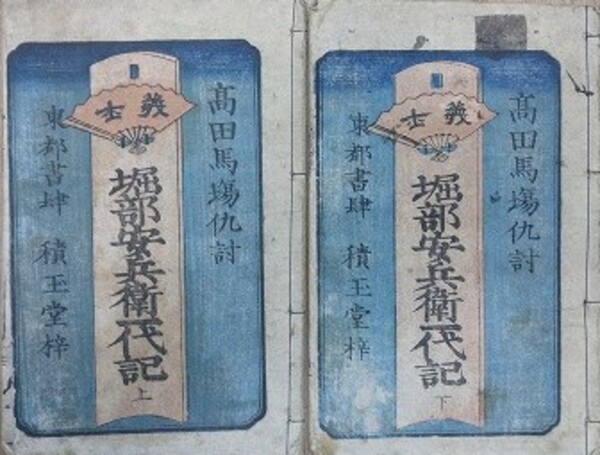 髙田馬塲仇討
義士
堀部安兵衛一代記
上
東都書肆 積玉堂梓
髙田馬塲仇討
義士
堀部安兵衛一代記
下
東都書肆 積玉堂梓